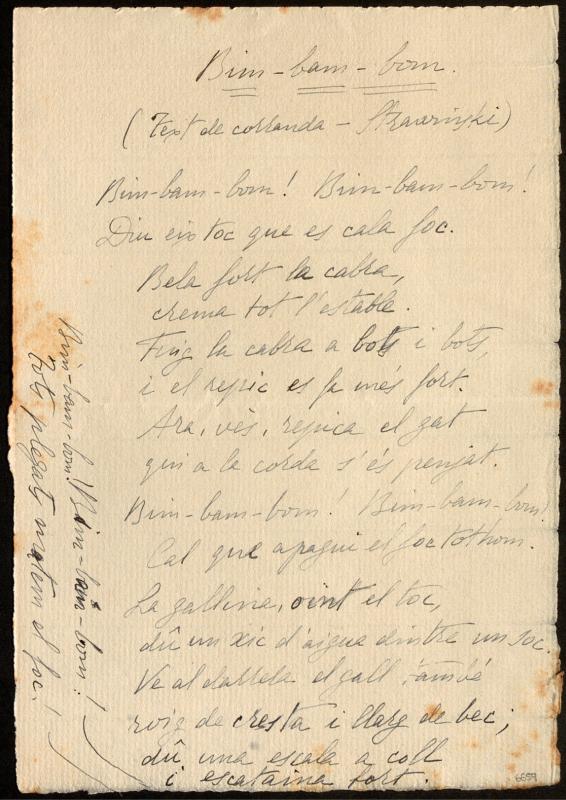 Bim-bam-bom.
(Text de corranda - Strawinski)
Bim-bam-bom! Bim-bam-bom!
Diu eix toc que es cala foc.
Bela fort la cabra,
crema tot l'estable.
Fuig la cabra a bots i bots,
i el repic es fa més fort.
Ara, vès, repica el gat
qui a la corda s'és penjat.
Bim-bam-bom! Bim-bam-bom!
Cal que apagui el foc tothom.
La gallina, oint el toc,
dû un xic d'aigua dintre un soc.
Ve al darrela el gall també
roig de cresta i llarg de bec;
dû una escala a coll
i escataina fort.
Bim-bam-bom! Bim-bam-bom!
Tots plegats matem el foc!
6659